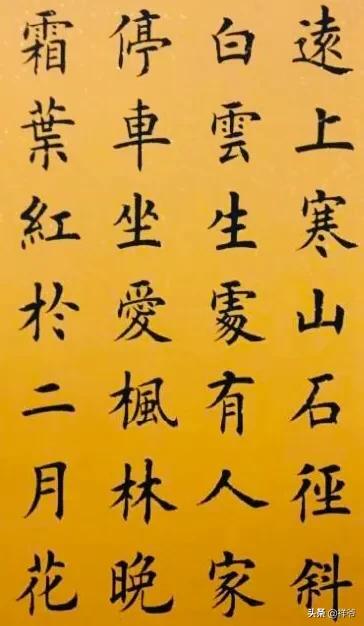 遠上寒山石徑斜
白雲生處有人家
停車坐愛楓林晚
霜葉紅於二月花
头条 @祥爷